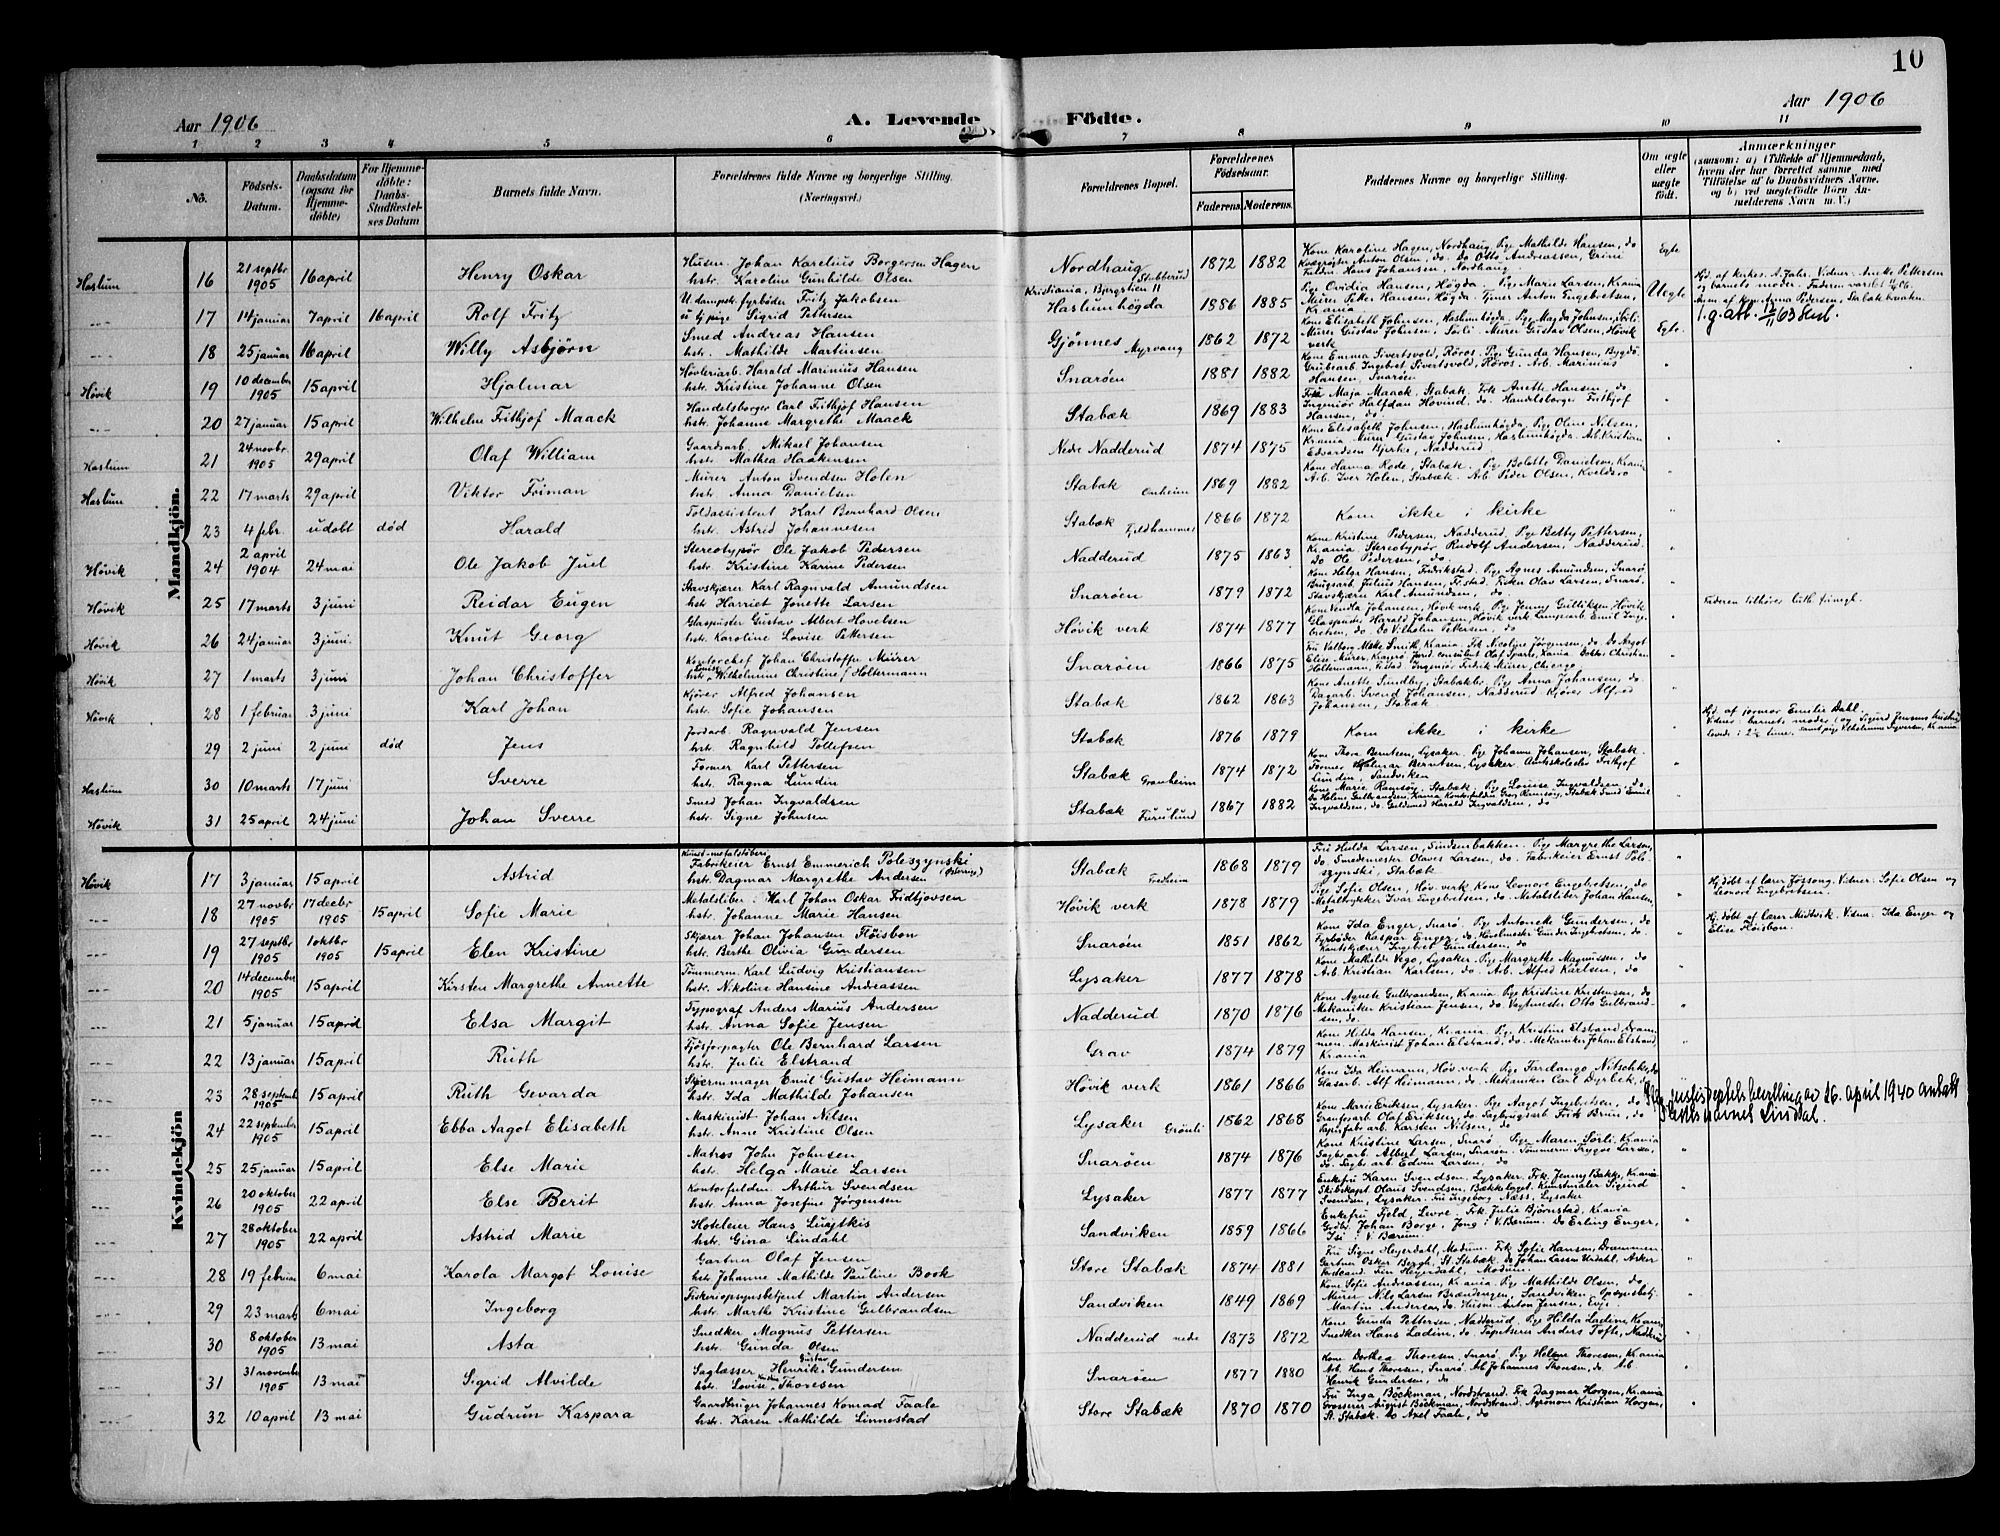 10
Aar 1906
A. Levende Födte.
Aar 1906
1 2 3 4 5 6 7 8 9 10 11
No.
Födsels-Datum.
Daabsdatum (ogsaa for Hjemmedöbte)
For Hjemmedöbte: Daabs-Stadfestelses Datum
Barnets fulde Navn.
Forældrenes fulde Navne og borgerlige Stilling. (Næringsvei.)
Forældrenes Bopæl.
Forældrenes Födselsaar.
Faderens. Moderens.
Faddernes Navne og borgerlige Stilling.
Om ægte eller uægte födt.
Anmærkninger
(saasom: a) i Tilfælde af Hjemmedaab, hvem der har forrettet samme med Tilföielse af to Daabsvidners Navne, og b) ved uægtefödte Börn Anmelderens Navn m. V.)
Mandkjön.
Haslum 16 21 septbr 1905 16 april Henry Oskar Husm. Johan Karelius Borgersen Hagen hstr. Karoline Gunhilde Olsen Nordhaug Stubberud 1872 1882 Kone Karoline Hagen, Nordhaug. Pge Mathilde Hansen, do Anton Olsen, do. do Otto Andreassen, Grini Hans Johansen, Nordhaug Egte
17 14 januar 7 april 16 april Rolf Fritz U. dampsk. fyrböder Fritz Jakobsen u tj. pige Sigrid Pettersen Kristiania, Bergstien 11 Haslumhögda 1886 1885 Pge Ovidia Hansen, Högda. Pge Marie Larsen, Krania Murer Petter Hansen, Högda. Tjener Anton Engebretsen, Krania Uegte
18 25 januar 16 april Willy Asbjörn Smed Andreas Hansen hstr. Mathilde Martinsen Gjönnes Myrvang 1862 1872 Kone Elisabeth Johnsen, Haslumhögda. Pge Magda Johnsen, Murer Gustav Johnsen, Sörli. Murer Gustav Olsen, Hövik verk Egte.
Hövik 19 10 december 1905 15 april Hjalmar Harald Marinius Hansen hstr. Kristine Johanne Olsen Snaröen 1881 1882 Kone Emma Sivertsvold, Röros. Pge Gunda Hansen, Bygdö. Grubearb. Ingebret Sivertsvold, Röros. Arb. Marinius Hansen, Snaröen "
20 27 januar 15 april Wilhelm Frithjof Maack Handelsborger Carl Frithjof Hansen hstr. Johanne Margrethe Maack Stabæk 1869 1883 Frk Maja Maack, Stabæk. Frk Aneth Hansen, do Ingeniör Halfdan Hovind. do. Handelsborger Frithjof Hansen, do "
Haslum 21 24 novbr. 1905 29 april Olaf William Gaardsarb. Mikael Johansen hstr. Mathea Haakensen Nedre Nadderud 1874 1875 Kone Elisabeth Johnsen, Haslumhögda. Pge Oline Nilsen, Krania Murer Gustav Johnsen, Haslumhögda. Arb. Kristian Edvardsen Bjerke, Nadderud
Haslum 22 17 marts 29 april Viktor Friman Murer Anton Svendsen Holen hstr. Anna Danielsen Stabæk Onheim 1869 1882 Kone Hanna Rode, Stabæk. Pge Bolette Danielsen, Krania Arb. Iver Holen, Stabæk. Arb. Peder Olsen, "
23 4 febr. udöbt död Harald Toldassistent Karl Bernhard Olsen hstr. Astrid Johannesen Stabæk Fjeldhammer 1866 1872 Kom ikke i kirke "
Hövik 24 2 april 1904 24 mai Ole Jakob Juel Stereotypör Ole Jakob Pedersen hstr. Kristine Karine Pedersen Nadderud 1875 1863 Kone Kristine Pedersen, Nadderud. Pge Betty Pettersen, Krania Stereotypör Rudolf Andersen, Nadderud. Do Ole Pedersen, do "
Hövik 25 17 marts 3 juni Reidar Eugen Stavskjærer Karl Ragnvald Amundsen hstr. Harriet Jonette Larsen Snaröen 1879 1872 Kone Helga Hansen, Fredrikstad. Pge Agnes Amundsen, Snarö. Brugsarb. Julius Hansen, Fr.stad. Olav Larsen, Snarö. Stavskjærer Karl Amundsen, do " Faderen tilhörer luth. frimegh.
Hövik 26 24 januar 3 juni. Knut Georg Glaspuster Gustav Albert Hovelsen hstr. Karoline Lovise Pettersen Hövik verk 1874 1877 Kone Venda Johansen, Hövik verk. Pge Jenny Gulliksen, Hövik Glaspuster Harald Johansen, Hövik verk Emil Ingebretsen, do. do Vilhelm Pettersen, do "
Hövik 27 1 marts 3 juni Johan Christoffer Kontorchef Johan Christoffer Mürer hstr. Louise Wilhelmine Christine f. Holtermann Snaröen 1866 1875 Fru Valborg Smith, Krania. Frk Nicoline Jörgensen, do. Do Aagot Elise Mürer, Kragerö Jurid. consulent Olaf Sparre, Krania Doktor Christian Holtermann, Fr.stad. Ingeniör Fredrik Mürer, Chicago "
Hövik 28 1 februar 3 juni Karl Johan Kjörer Alfred Johansen hstr. Sofie Johansen Stabæk 1862 1863 Kone Anette Sundby, Stabækbr. Pge Anna Johansen, do Dagarb. Svend Johansen, Nadderud Kjörer Alfred Johansen, Stabæk "
29 2 juni 2 juni död Jens Jordarb. Ragnvald Jensen hstr. Ragnhild Tollefsen Stabæk 1876 1879 Kom ikke i kirke " Hjd. af jormor Emilie Dahl. Vidner: barnets moder og Sigurd Jensens hustru
Haslum 30 10 marts 17 juni Sverre Former Karl Pettersen hstr. Ragna Lunden Stabæk Granheim 1874 1872 Kone Thora Berntsen, Lysaker. Pge Johanne Johansen, Stabæk Former Hjalmar Berntsen, Lysaker. Frithjof Lunden, Sandviken "
Hövik 31 25 april 24 juni Johan Sverre Smed Johan Ingvaldsen hstr. Signe Johnsen Stabæk Furulund 1867 1882 Kone Marie Ramsöy, Stabæk. Pge Louise Ingvaldsen, do Do Helene Gulbrandsen, Krania Georg Ramsöy, Stabæk Smed Emil Ingvaldsen, do. Guldsmed Harald Ingvaldsen, do "
Kvindekjön
Hövik 17 3 januar 15 april Astrid Kunst-metalstöberi Fabrikeier Ernst Emmerich Poleszynski (Österrig) hstr. Dagmar Margrethe Andersen Stabæk Fredheim 1868 1879 Fru Hulda Larsen, Pge Margrethe Larsen, do. Smedemester Olaves Larsen, do. Fabrikeier Ernst Poleszynski, Stabæk "
18 27 novbr 1905 17 decbr 1905 15 april Sofie Marie Metalsliber Karl Johan Oskar Fridtjovsen hstr. Johanne Marie Hansen Hövik verk 1878 1879 Pge Sofie Olsen, Höv. verk Kone Leonore Engebretsen, do Metaltrykker Ivar Engebretsen, do. Metalsliber Johan Hansen, do " Hj. döbt af lærer Jossang. Vidner: Sofie Olsen og Leonore Engebretsen.
19 27 septbr 1905 1 oktbr 1905 15 april Elen Kristine Skjærer Johan Johansen Flöisbon hstr. Berthe Olivia Gundersen Snaröen 1851 1862 Kone Ida Enger, Snarö. Pge Antonette Gundersen, do. Fyrböder Kaspar Enger, do Hövelmester Gunder Ingebretsen, do. Kantskjærer Ingebret Gundersen, do " Hj. döbt af lærer Midtvik. Vidner: Ida Enger og Elise Flöisbon.
20 14 december 1905 15 april Kirsten Margrethe Annette Tömmerm. Karl Ludvig Kristiansen hstr. Nikoline Hansine Andreassen Lysaker 1877 1878 Kone Mathilde Vego, Lysaker. Pge Margrethe Magnussen, do Arb. Kristian Karlsen, do Arb. Alfred Karlsen, do "
21 5 januar 15 april Elsa Margit Typograf Anders Marius Andersen hstr. Anna Sofie Jensen Nadderud 1870 1876 Kone Agnete Gulbrandsen, Krania. Pge Kristine Kristensen, do Mekaniker Kristian Jensen, do Vagtmester Otto Gulbrandsen, do. "
22 13 januar 15 april Ruth Fjösforpagter Ole Bernhard Larsen hstr. Julie Elstrand Grav 1874 1879 Kone Hilda Hansen, Krania. Pge Kristine Elstrand, Drammen. Maskinist Johan Elstrand, do. Mekaniker Johan Elstrand, Krania "
23 28 septemb 1905 15 april Ruth Gevarda Skjermmager Emil Gustav Heimann hstr. Ida Mathilde Johansen Hövik verk 1861 1866 Kone Ida Heimann, Höv. verk. Pge Fardango Nitschke, do Glasarb. Alf Heimann, do. Mekaniker Carl Dyrbek, do
24 22 september 1905 15 april Ebba Aagot Elisabeth Maskinist Johan Nilsen hstr. Anne Kristine Olsen Lysaker Grönli 1862 1868 Kone Marie Eriksen, Lysaker. Pge Aagot Ingebretsen, do Olaf Eriksen, do Sagbrugsarb. Fritz Bruun, do Papirfabr. arb. Karsten Nilsen, do bevilling av 26. april 1940 antatt slektsnavnet Lindal.
25 25 januar 15 april Else Marie Matros John Johnsen hstr. Helga Marie Larsen Snaröen 1874 1876 Kone Kristine Larsen, Snarö. Pge Maren Sörli, Krania Sagbr. arb. Albert Larsen, Snarö. Tömmerm. Trygve Larsen, do. Sagbr. arb. Edvin Larsen, do "
26 20 oktober 1905 22 april Else Berit Kontorfuldm. Arthur Svendsen hstr. Anna Josefine Jörgensen Lysaker 1877 1877 Enkefru Karen Svendsen, Lysaker. Frk. Jenny Bakke, Krania Skibskapt. Olaus Svendsen, Bakketeget. Kunstmaler Sigurd Svendsen, Lysaker. Fru Ingeborg Næss, Lysaker "
27 28 oktober 1905 22 april Astrid Marie Hoteleier Hans hstr. Gina Lindahl Sandviken 1859 1866 Enkefru Fjeld, Levre. Frk. Julie Björnstad, Krania Grdbr. Johan Borge, Jong i V. Bærum. Do Erling Enger, Isi i V. Bærum. "
28 19 februar 6 mai Karola Margot Louise Gartner Olaf Jensen hstr. Johanne Mathilde Pauline Book Store Stabæk 1874 1881 Fru Signe Heyerdahl, Modum. Frk Sofie Hansen, Drammen Gartner Oskar Bergh, St. Stabæk. do Johan Lassen Urdahl, Asker Heyerdahl, Modum. "
29 23 marts 6 mai Ingeborg Fiskeriopsynsbetjent Martin Andersen hstr. Marthe Kristine Gulbrandsen Sandviken 1849 1869 Kone Sofie Andreassen, Krania Pge Mathilde Olsen, do Murer Nils Larsen Brændengen, Sandviken. Opsynsbetj. Martin Andersen, do. Husm. Anton Jensen, Evje. "
30 8 oktober 1905 13 mai Asta Snedker Magnus Pettersen hstr. Gunda Olsen Nadderud nedre 1873 1872 Kone Gunda Pettersen, Nadderud. Pge Hilda Ladim, Krania, Snedker Hans Ladim, do. Tapetserer Anders Tofte, Nadderud "
31 31 november 1905 13 mai Sigrid Alvilde Saglasser Henrik Gustav Gundersen hstr. Lovise Thoresen Snaröen 1877 1880 Kone Dorthea Thoresen, Snarö. Pge Helene Thoresen, Krania Arb. Hans Thoresen, Snarö. Arb Johannes Thoresen, do. Arb. Henrik Gundersen, do "
32 10 april 13 mai Gudrun Kaspara Gaardbruger Johannes Konrad Faale hstr. Karen Mathilde Linnestad Store Stabæk 1870 1870 Fru Inga Böckman, Nordstrand. Frk Dagmar Horgen, Krania Grosserer August Böckman, Nordstrand. Agronom Kristian Horgen, St. Stabæk. do Axel Faale, do "